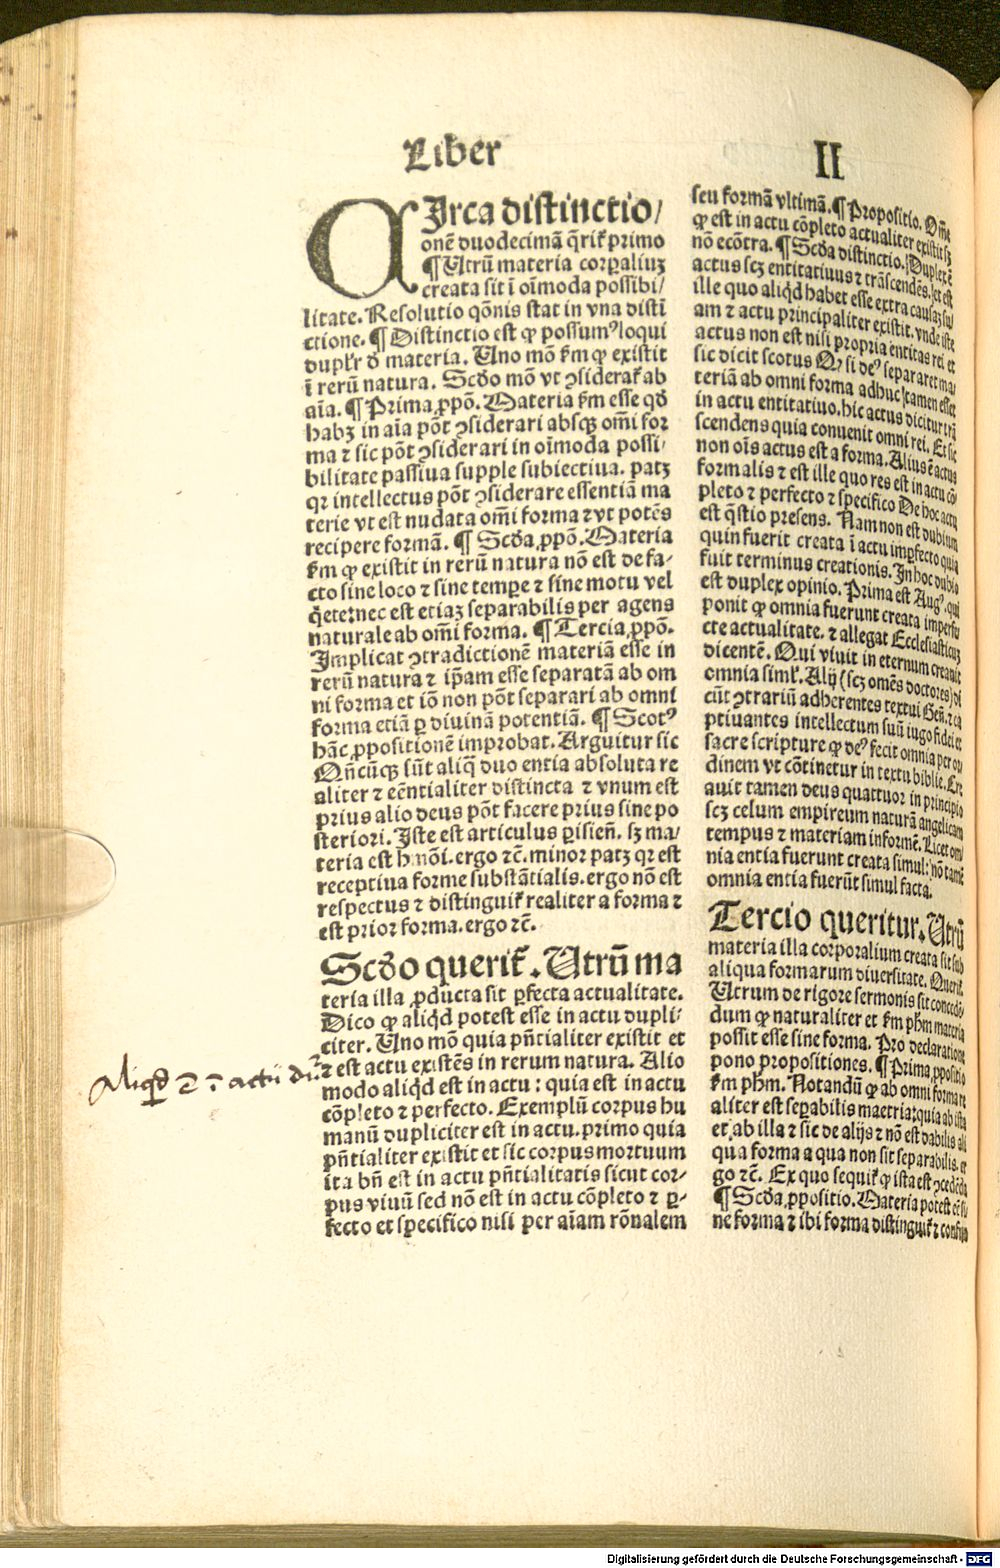 Liber II
CIrca distinctio/
onē duodecimā q̄rit̄ primo
¶ Utrū materia corꝑaliuꝫ
creata sit ī oīmoda possibi/
litate. Resolutio qōnis stat in vna distī
ctione. ¶ Distinctio est ꝙ possumꝰ loqui
duplr̄ d̄ materia. Uno mō f̄m ꝙ existit
ī rerū natura. Scd̄o mō vt ꝯsiderat̄ ab
aīa. ¶ Prima ꝓpō. Materia f̄m esse qd̄
habꝫ in aīa pōt ꝯsiderari absqꝫ om̄i for
ma ⁊ sic pōt ꝯsiderari in oīmoda possi/
bilitate passiua supple subiectiua. patꝫ
qꝛ intellectus pōt ꝯsiderare essentiā ma
terie vt est nudata om̄i forma ⁊ vt potēs
recipere formā. ¶ Scd̄a ꝓpō. Materia
f̄m ꝙ existit in rerū natura nō est de fa/
cto sine loco ⁊ sine tempꝑe ⁊ sine motu vel
q̄ete: nec est etiaꝫ separabilis per agens
naturale ab om̄i forma. ¶ Tercia ꝓpō.
Implicat ꝯtradictionē materiā esse in
rerū natura ⁊ ip̄am esse separatā ab om
ni forma et iō non pōt separari ab omni
forma etiā ꝑ diuinā potentiā. ¶ Scotꝰ
hāc ꝓpositionē improbat. Arguitur sic
Qn̄cūqꝫ sūt aliq̄ duo entia absoluta re
aliter ⁊ eēntialiter distincta ⁊ vnum est
prius alio deus pōt facere prius sine po
steriori. Iste est articulus ꝑisien̄. sꝫ ma/
teria est h̄mōi. ergo ⁊c̄. minor patꝫ qꝛ est
receptiua forme substātialis. ergo nō est
respectus ⁊ distinguit̄ realiter a forma ⁊
est prior forma. ergo ⁊c̄.
Scd̄o querit̄. Utrū ma
teria illa ꝓducta sit ꝑfecta actualitate.
Dico ꝙ aliqd̄ potest esse in actu dupli/
citer. Uno mō quia pn̄tialiter existit et
⁊ est actu existēs in rerum natura. Alio
modo aliqd̄ est in actu: quia est in actu
cōpleto ⁊ perfecto. Exemplū corpus hu
manū dupliciter est in actu. primo quia
pn̄tialiter existit et sic corpus mortuum
ita bn̄ est in actu pn̄tialitatis sicut cor/
pus viuū sed nō est in actu cōpleto ⁊ ꝑ/
fecto et specifico nisi per aīam rōnalem
Aliqd̄ ī actu
seu formā vltimā. ¶ Propositio. Om̄e
ꝙ est in actu cōpleto actualiter existit sꝫ
nō ecōtra. ¶ Scd̄a distinctio. Duplex ē
actus scꝫ entitatiuus ⁊ trāscendēs. et est
ille quo aliqd̄ habet esse extra causaꝫ su/
am ⁊ actu principaliter existit. vnde iste
actus non est nisi propria entitas rei et
sic dicit scotus Qꝛ si deꝰ separaret ma/
teriā ab omni forma adhuc tamen esset
in actu entitatiuo. hic actus dicitur trā
scendens quia conuenit omni rei. Et sic
non oīs actus est a forma. Alius ē actus
formalis ⁊ est ille quo res est in actu cō/
pleto ⁊ perfecto ⁊ specifico De hoc actu
est q̄stio presens. Nam non est dubium
quin fuerit creata ī actu impfecto quia
fuit terminus creationis. In hoc dubio
est duplex opinio. Prima est Augꝰ. qui
ponit ꝙ omnia fuerunt creata imperfe
cte actualitate. ⁊ allegat Ecclesiasticuꝫ
dicentē. Qui viuit in eternum creauit
omnia simł. Alij (scꝫ omēs doctores) di
cūt ꝯtrariū adherentes textui Gen̄. ⁊ ca
ptiuantes intellectum suū iugo fidei et
sacre scripture ꝙ deꝰ fecit omnia per or/
dinem vt cōtinetur in textu biblie. Cre
auit tamen deus quattuor in principio
scꝫ celum empireum naturā angelicam
tempus ⁊ materiam informē. Licet om/
nia entia fuerunt creata simul: nō tamē
omnia entia fuerūt simul facta.
Tercio queritur. Utrū
materia illa corporalium creata sit sub
aliqua formarum diuersitate. Querit̄.
Utrum de rigore sermonis sit concedē/
dum ꝙ naturaliter et f̄m ph̄m materia
possit esse sine forma. Pro declaratione
pono propositiones. ¶ Prima ꝓpositio
f̄m ph̄m. Notandū ꝙ ab omni forma re
aliter est seꝑabilis maetria: quia ab ista
et ab illa ⁊ sic de alijs ⁊ nō est dabilis ali
qua forma a qua non sit separabilis. er
go ⁊c̄. Ex quo sequit̄ ꝙ ista est ꝯcedēda
¶ Scd̄a ꝓpositio. Materia potest eē si/
ne forma ⁊ ibi forma distinguit̄ ⁊
Digitalisierung gefördert durch die Deutsche Forschungsgemeinschaft - DFG